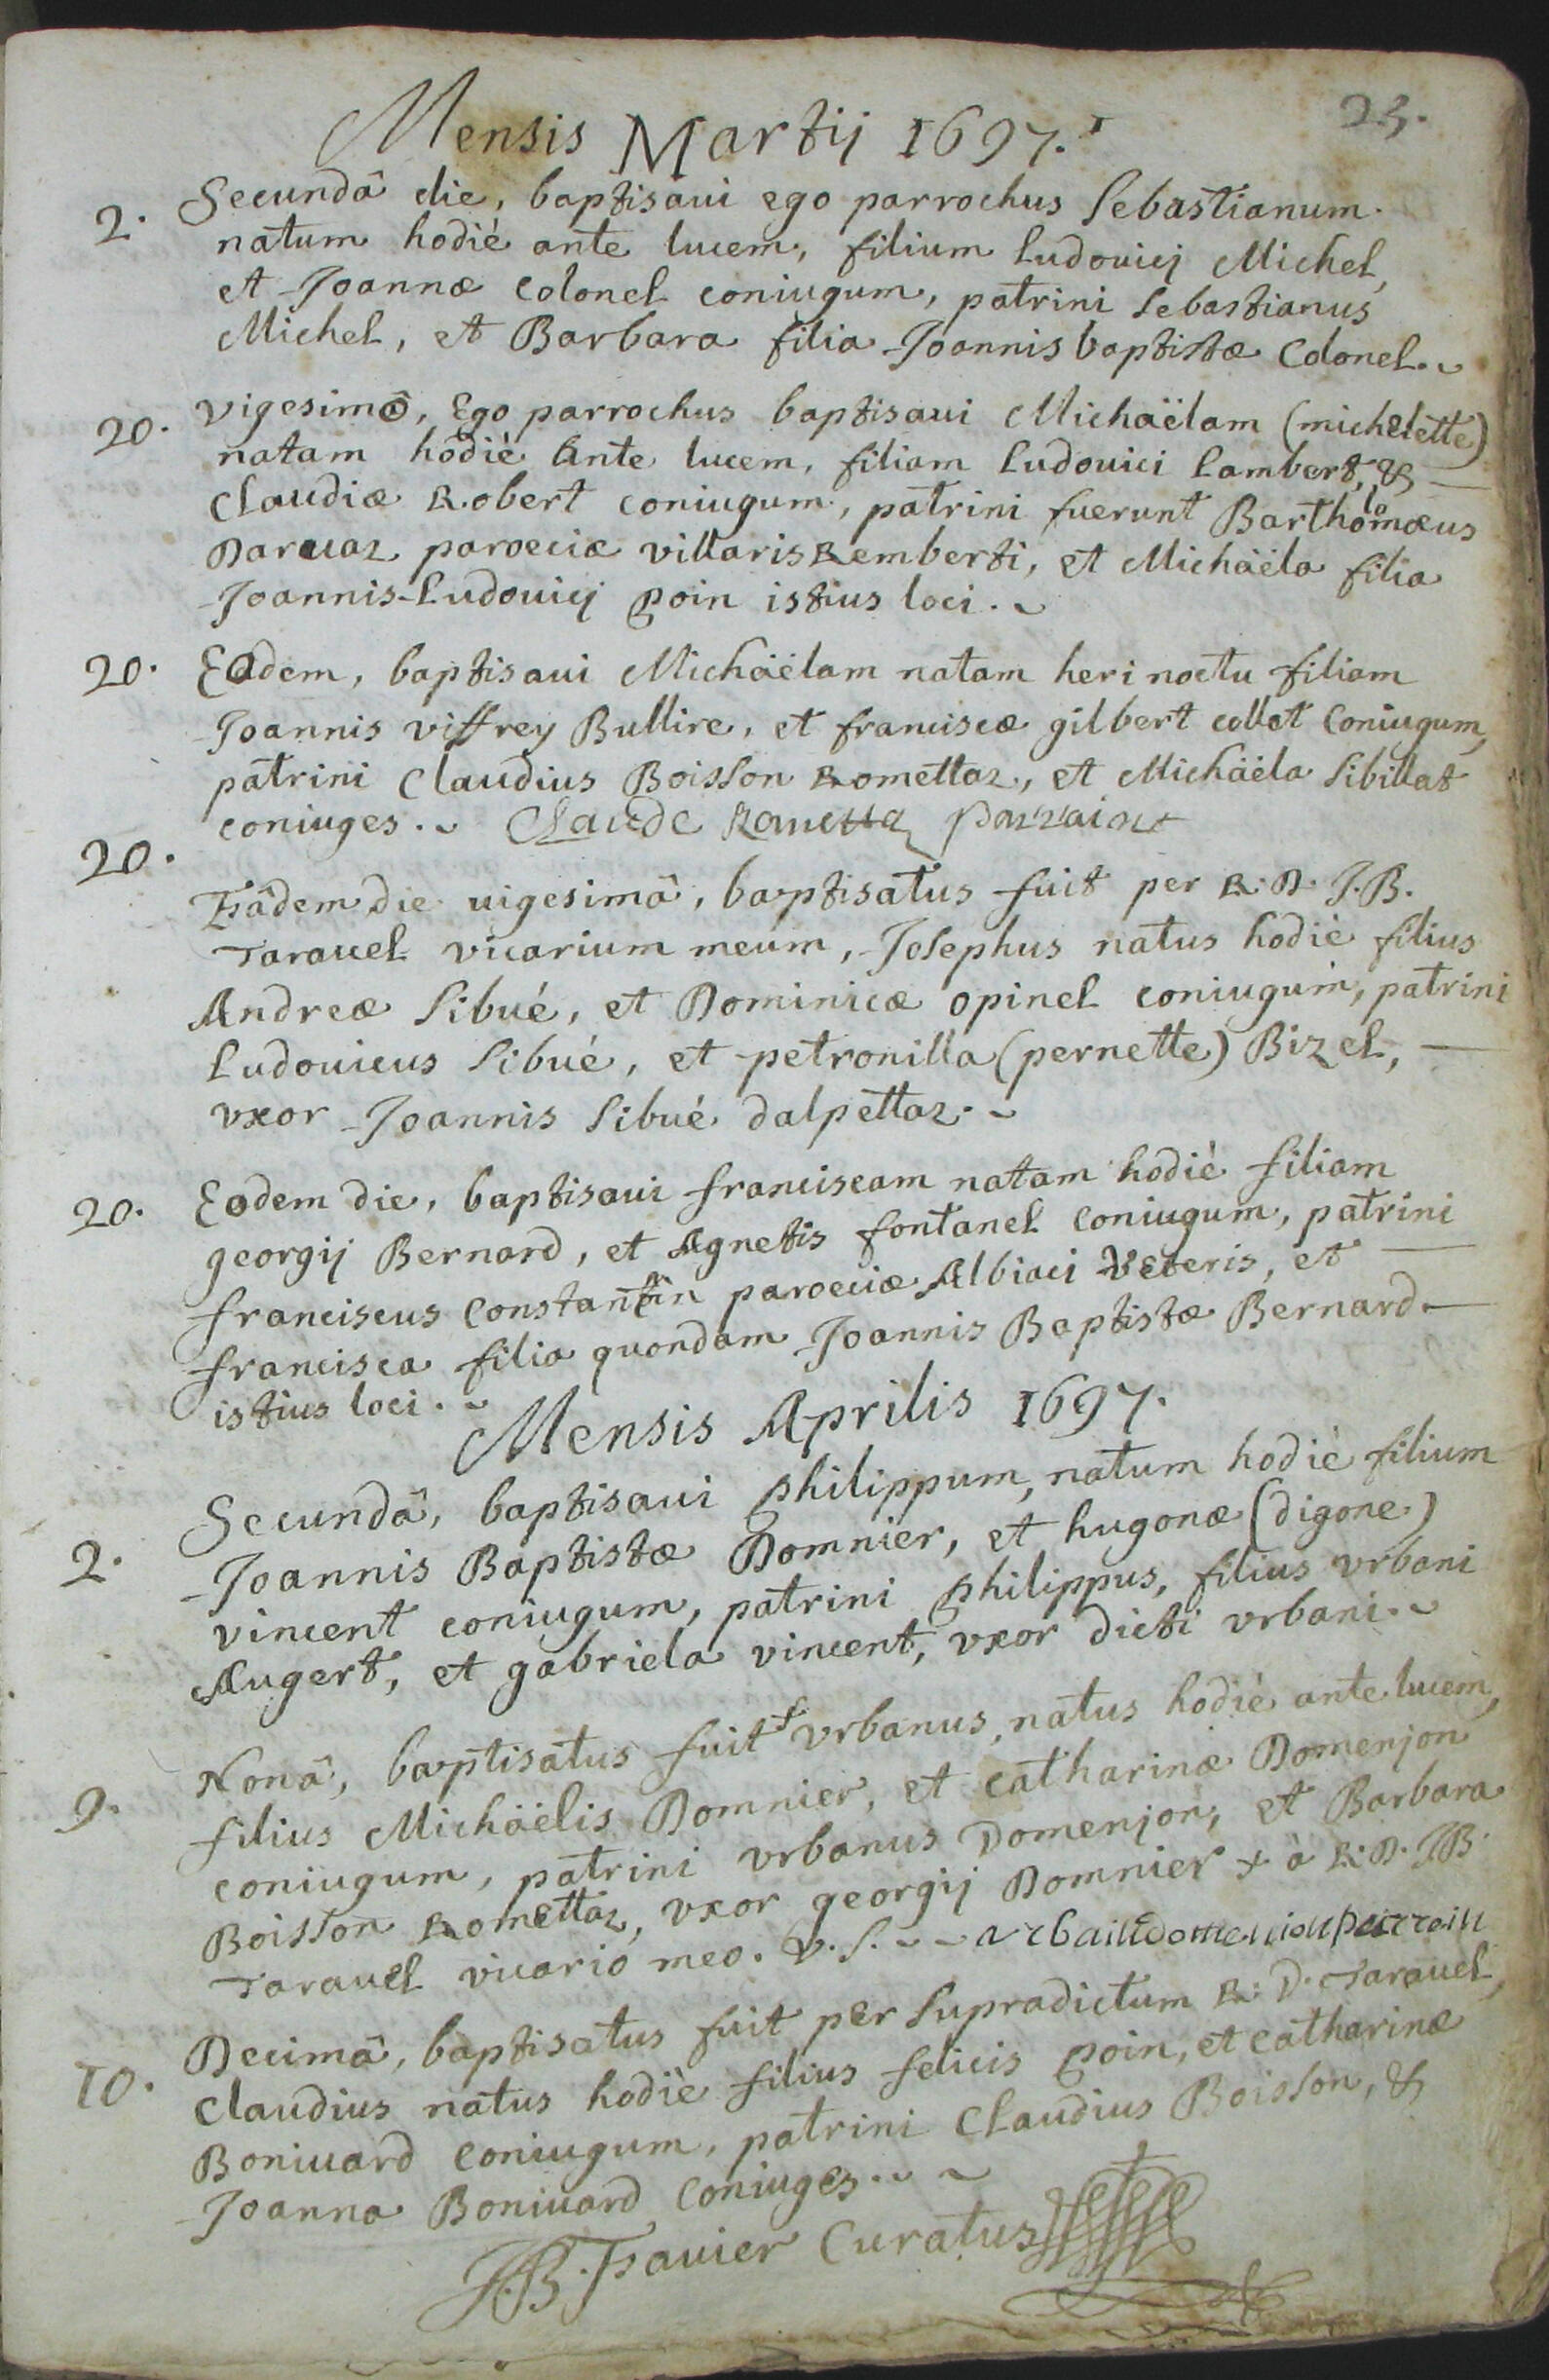 23.
Mensis Martij 1697.
2. Secundâ die, baptisaui ego parrochus Sebastianum
natum hodiè ante lucem, filium Ludouicj Michel,
et Joannæ Colonel coniugum, patrini Sebastianus
Michel, et Barbara filia Joannis baptistæ Colonel.
20. vigesimâ, Ego parrochus baptisaui Michaëlam (michelette)
natam hodiè ante lucem, filiam Ludouici Lambert, &
Claudiæ Robert coniugum, patrini fuerunt Bartholomæus
Daruaz paroeciæ villaris Remberti, et Michaëla filia
Joannis-Ludouicj poin istius loci.
20. Eadem, baptisaui Michaëlam natam heri noctu filiam
Joannis viffrey Bullire, et franciscæ gilbert collet Coniugum,
patrini Claudius Boisson Romettaz, et Michaëla Sibillat
coniuges. Claude Rometta parrain
20. Eâdem die uigesimâ, baptisatus fuit per R. D. J. B.
Tarauel vicarium meum, Josephus natus hodiè filius
Andreæ Sibué, et Dominicæ opinel coniugum, patrini
Ludouicus Sibué, et petronilla (pernette) Bizel,
vxor Joannis Sibué dalpettaz.
20. Eodem die, baptisaui franciscam natam hodiè filiam
georgij Bernard, et Agnetis fontanel coniugum, patrini
franciscus Constantin paroeciæ Albiaci Veteris, et
francisca filia quondam Joannis Baptistæ Bernard
istius loci.
Mensis Aprilis 1697.
2. Secundâ, baptisaui philippum, natum hodiè filium
Joannis Baptistæ Domnier, et hugonæ (digone)
vincent coniugum, patrini philippus, filius vrbani
Augert, et gabriela vincent, vxor dicti vrbani.
9. Nonâ, baptisatus fuit + vrbanus, natus hodiè ante lucem,
filius Michaëlis Domnier, et Catharinæ Domenjon
coniugum, patrini vrbanus Domenjon, et Barbara
Boisson Romettaz, vxor georgij Domnier + à R. D. J B.
Tarauel vicario meo. V. S. vrbain domenion parrain
10. Decimâ, baptisatus fuit per Supradictum R. D. Tarauel,
Claudius natus hodiè filius felicis poin, et Catharinæ
Boniuard Coniugum, patrini Claudius Boisson, &
Joanna Boniuard Coniuges.
Curatus